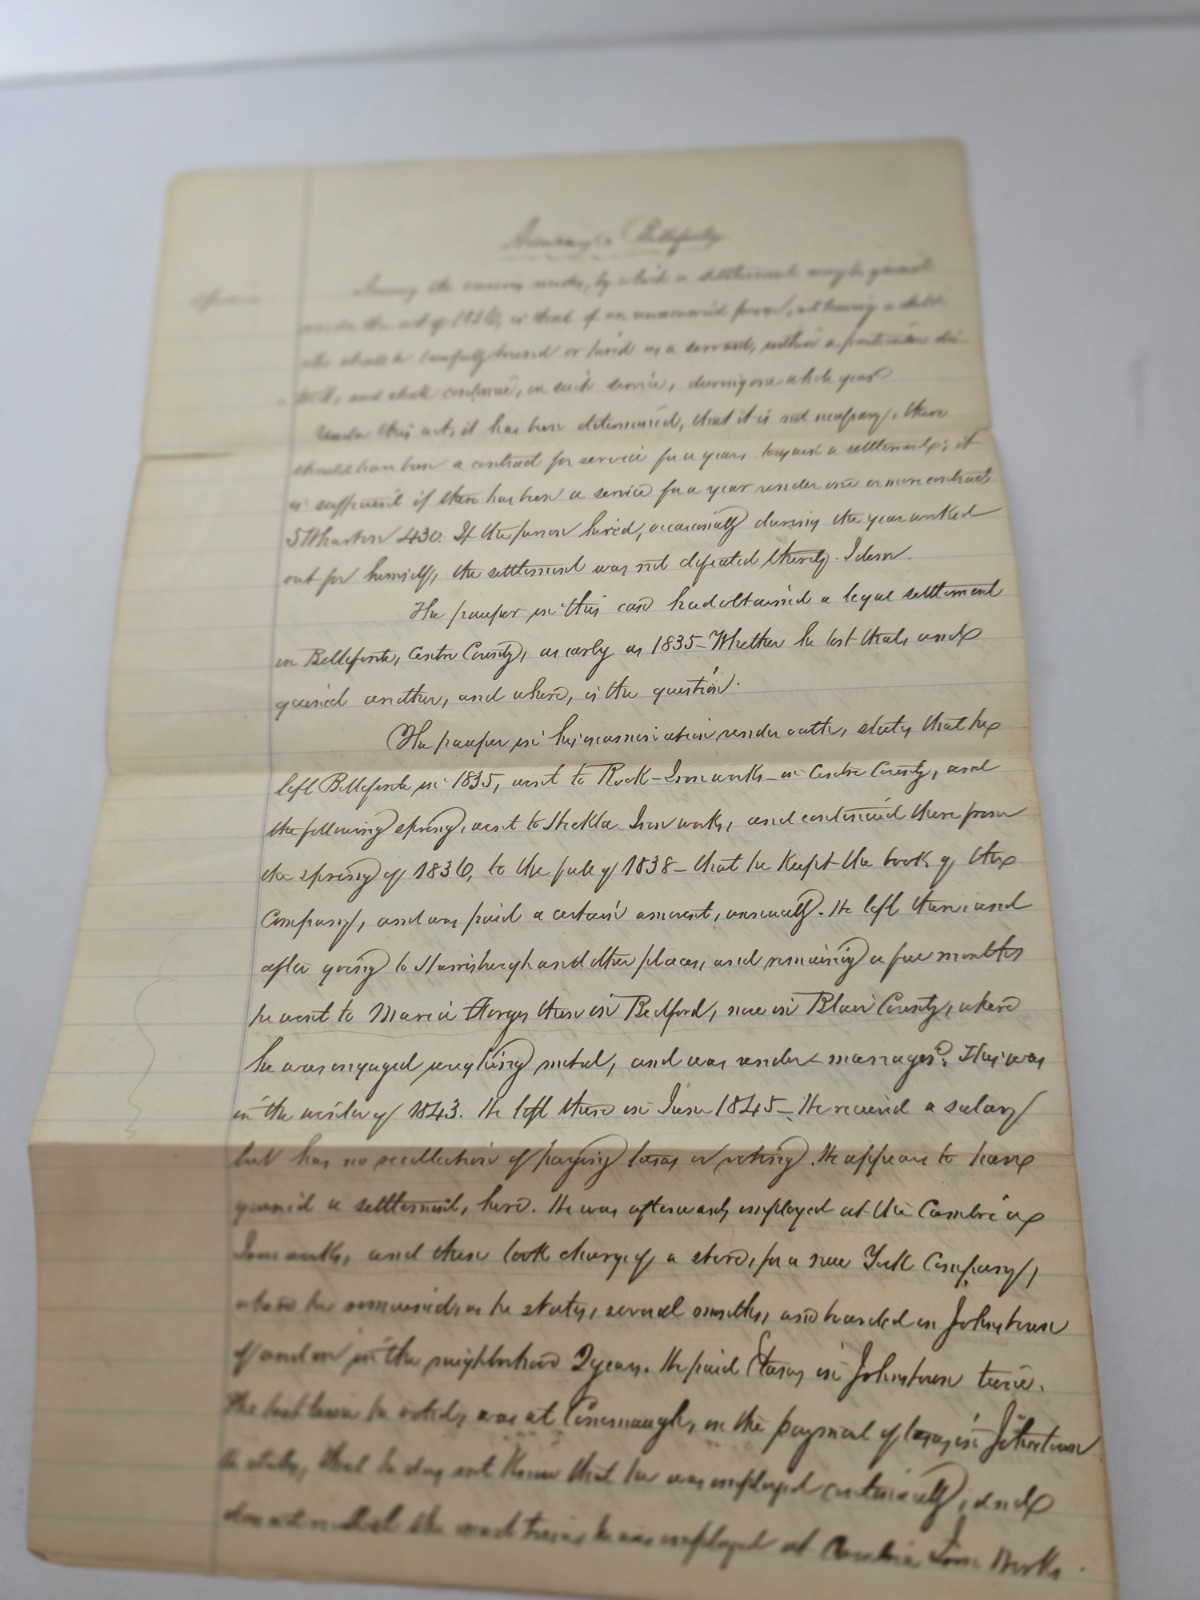 Bellefonte
Among the various modes, by which a settlement may be gained
under the act of 1836, is that of an unmarried person, not having a child
who shall be lawfully bound or hired as a servant, within a particular dis-
trict, and shall continue, in such service, during one whole year
Under this act, it has been determined, that it is not necessary, there
should have been a contract for service for a year, to gain a settlement; it
is sufficient if there has been a service for a year under one or more contracts
5 Wharton 430. If the person hired, occasionally during the year worked
out for himself, the settlement was not defeated thereby. Idem.
The pauper in this case had obtained a legal settlement
in Bellefonte, Centre County, as early as 1835 – Whether he lost that, and
gained another, and where, is the question.
The pauper in his examination under oath, states that he
left Bellefonte in 1835, went to Rock – Ironworks – in Centre County, and
the following spring, went to Heckla Iron works, and continued there from
the spring of 1836, to the fall of 1838 – that he kept the book of the
Company, and was paid a certain amount, annually. He left there, and
after going to Harrisburgh and other places, and remaining a few months
he went to Maria Forges then in Bedford, now in Blair County, where
he was engaged weighing metal, and was under manager. This was
in the winter of 1843. He left there in June 1845 – He received a salary
but has no recollection of paying taxes or voting. He appears to have
gained a settlement, here. He was afterwards employed at the Cambria
Iron works, and then took charge of a store, for a New York Company,
where he remained, as he states, several months, and boarded in Johnstown
and in the neighborhood 2 years. He paid taxes in Johnstown twice.
The last time he voted, was at Conemaugh, on the payment of taxes in Johnstown
he states, that he does not know that he was employed continually, and
does not recollect the exact time he was employed at Cambria Iron Works.